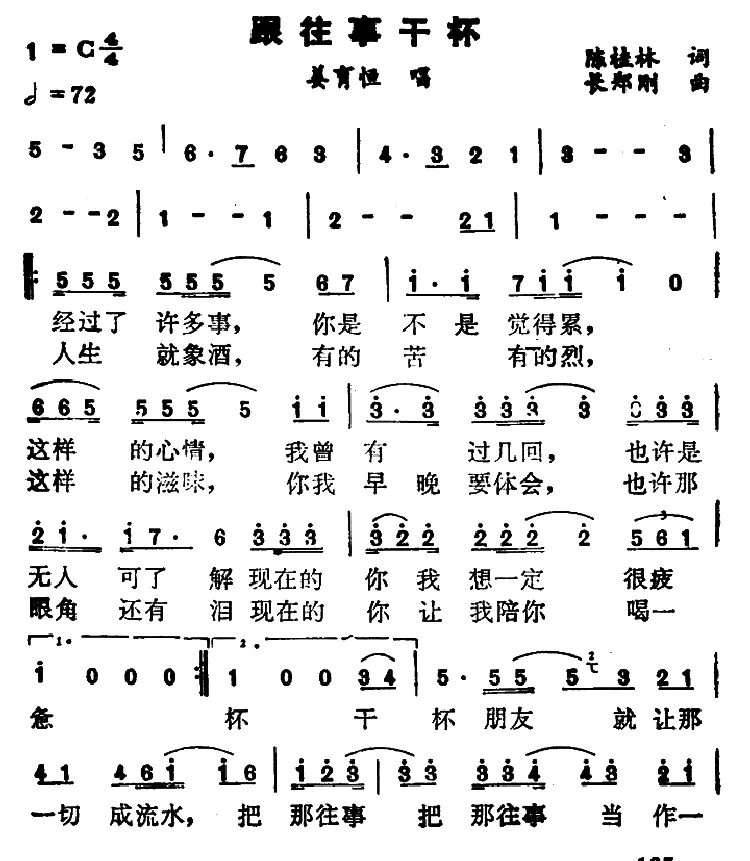 跟往事干杯
1 = C 4/4
陈桂林 词
姜育恒 唱
长郑刚 曲
♩ = 72
5 - 3 5 | 6 · 7 6 3 | 4 · 3 2 1 | 3 - - 3 |
2 - - 2 | 1 - - 1 | 2 - - 2 1 | 1 - - - |
‖: 5 5 5 5 5 5 5 6 7 | i · i 7 i i i 0 |
经过了 许多事, 你是 不 是 觉得累,
人生 就象酒, 有的 苦 有的烈,
6 6 5 5 5 5 5 i i | 3 · 3 3 3 3 3 0 3 3 |
这样 的心情, 我曾 有 过几回, 也许是
这样 的滋味, 你我 早 晚 要体会, 也许那
2 i · i 7 · 6 3 3 3 | 3 2 2 2 2 2 2 5 6 1 |
无人 可了 解 现在的 你 我 想一定 很疲
眼角 还有 泪 现在的 你 让 我陪你 喝一
1. i 0 0 0 :‖ 2. 1 0 0 3 4 | 5 · 5 5 5 3 2 1 |
惫 杯 干 杯 朋友 就 让那
4 1 4 6 i i 6 | i 2 3 3 3 | 3 3 4 4 3 2 i |
一切 成流水, 把 那往事 把 那往事 当 作一